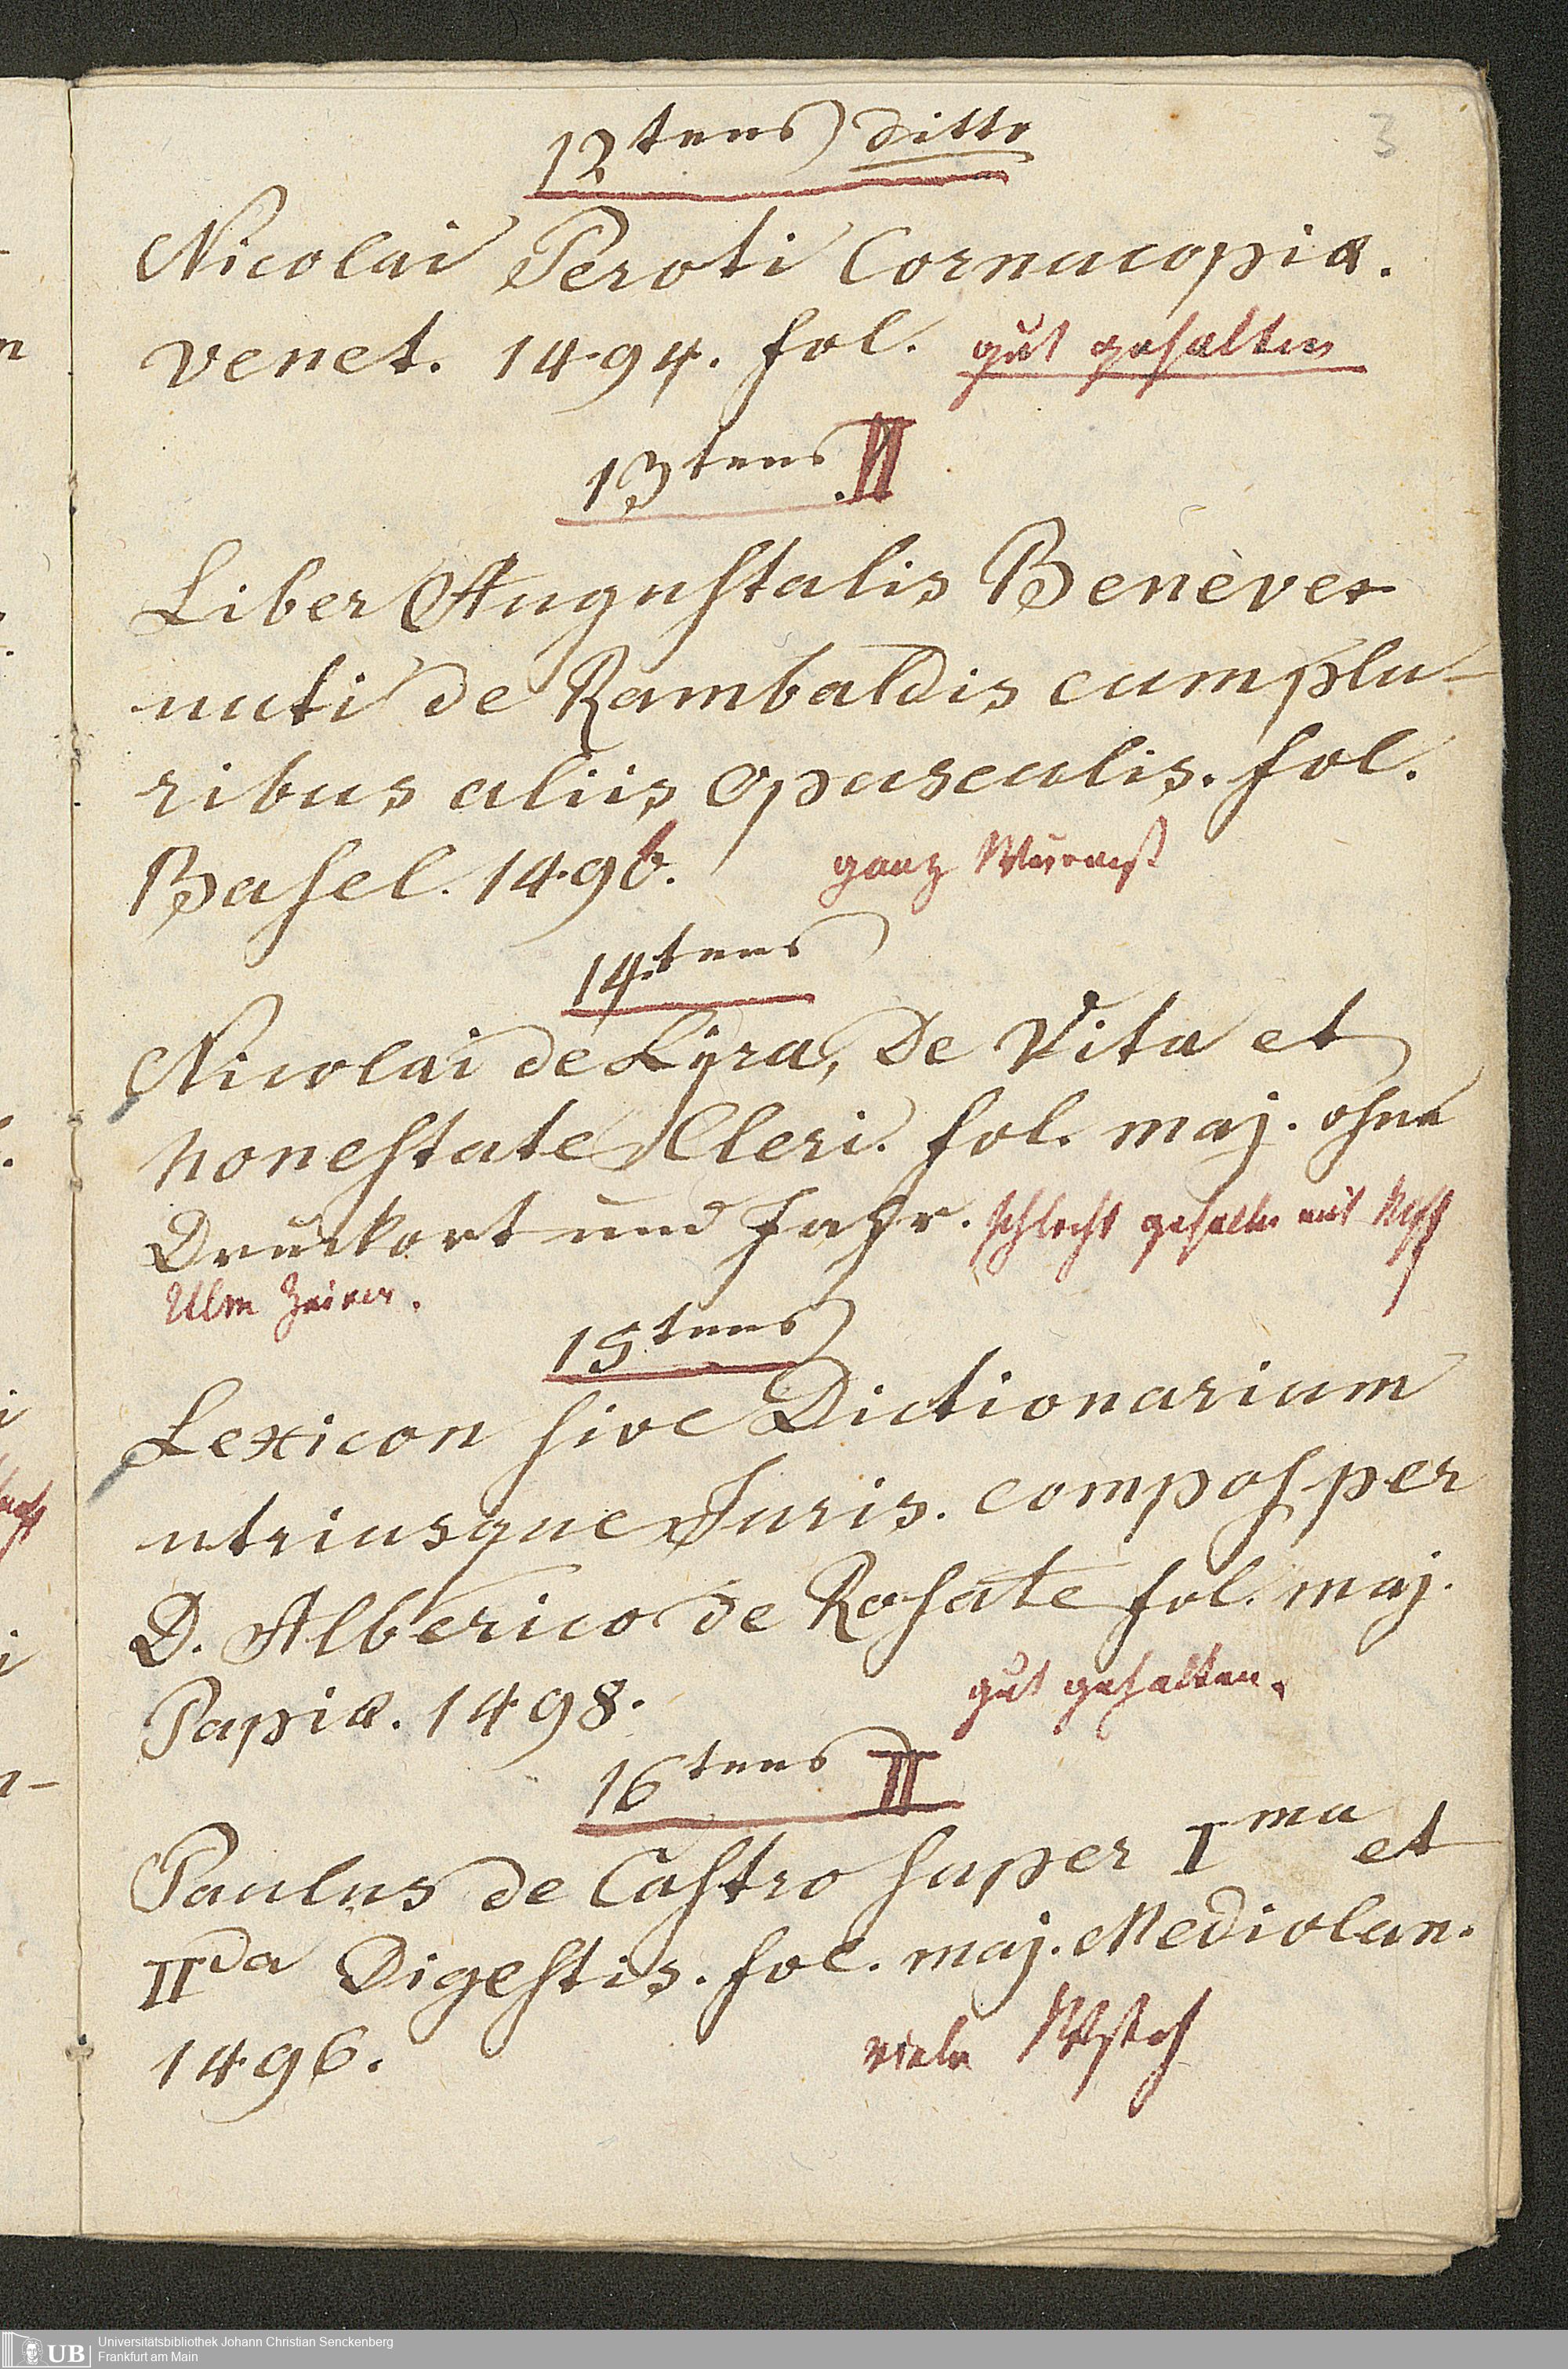 3
12tens ditto
Nicolai Peroti Cornucopiæ.
venet. 1494. fol. gut gehalten
13tens II
Liber Augustalis Benever
nuti de Rambaldis cum plu-
ribus aliis opusculis. fol.
Basel. 1496. ganz Wurmst
14tens
Nicolai de Lÿra, De Vita et
honestate Cleri. fol. maj. ohne
Druckort und Jahr. schlecht gehalten mit
Ulm Zeiner.
15tens
Lexicon sive Dictionarium
utriusque Juris. compos per
D. Alberico de Rosate fol. maj.
Papiæ. 1498. gut gehalten.
16tens II
Paulus de Castro super Ima et
IIda Digestis. fol. maj. Mediolan.
1496. viele Wstch
UB Universitätsbibliothek Johann Christian Senckenberg
Frankfurt am Main